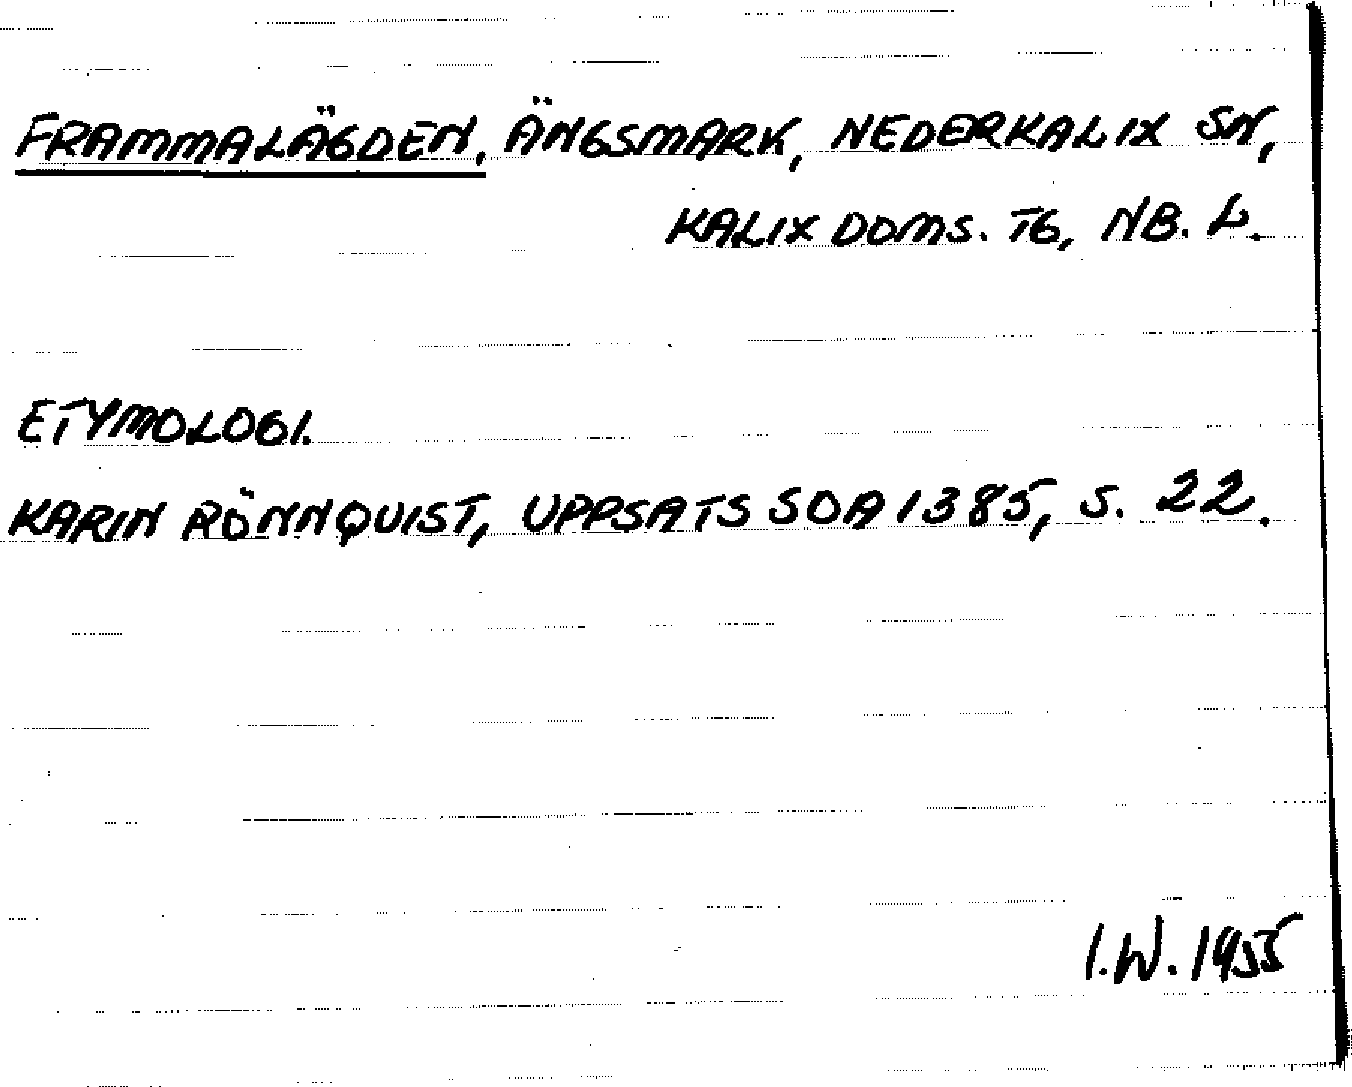 FRAMMALÄGDEN, ÄNGSMARK, NEDERKALIX SN,
KALIX DOMS. TG, NB. L.
ETYMOLOGI.
KARIN RÖNNQUIST, UPPSATS SOA 1385, S. 22.
I.W. 1955